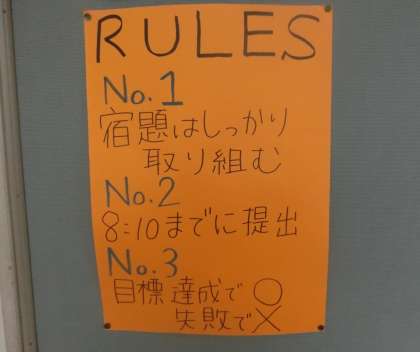 RULES
No.1
宿題はしっかり
取り組む
No.2
8:10までに提出
No.3
目標達成で○
失敗で×